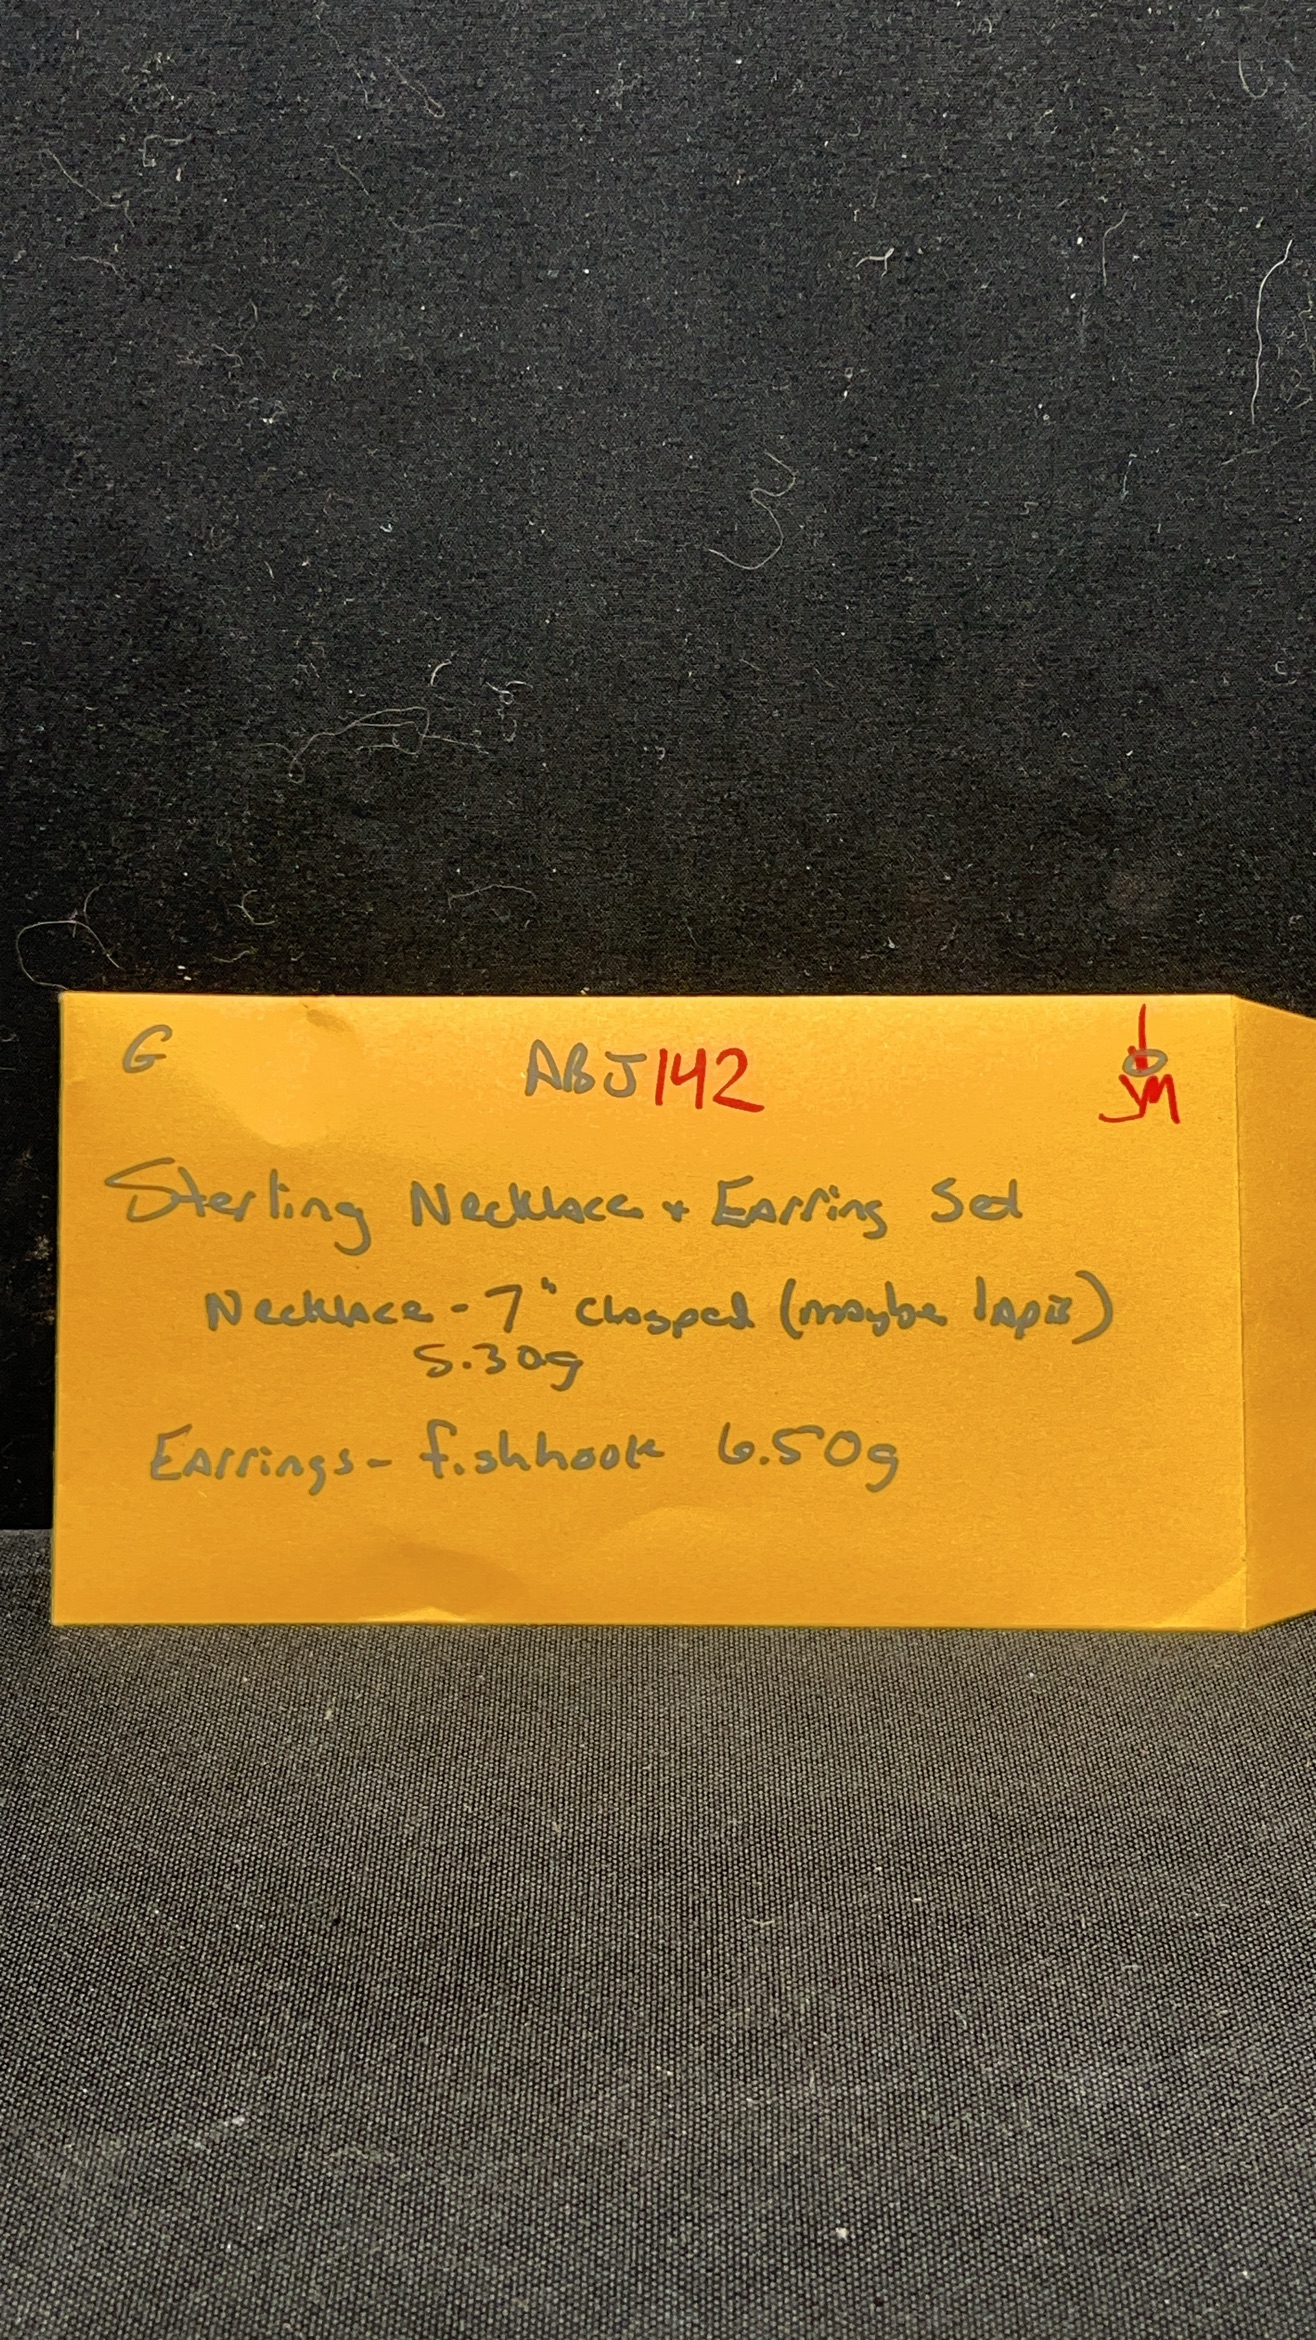 G ABJ142
JM
Sterling Necklace + Earring Set
Necklace - 7" clasped (maybe lapis)
5.30g
Earrings - fishhook 6.50g